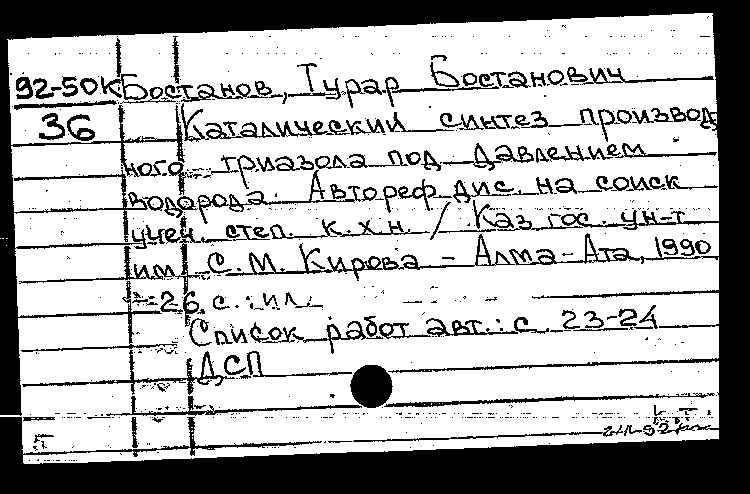 92-50К Бостанов, Турар Бостанович
36 Каталический синтез производ
ного триазола под давлением
водорода. Автореф. дис. на соиск
учен. степ. к.х.н. / Каз гос. ун-т
им. С.М. Кирова - Алма-Ата, 1990
- 26 с.: ил.
Список работ авт.: с. 23-24
ДСП